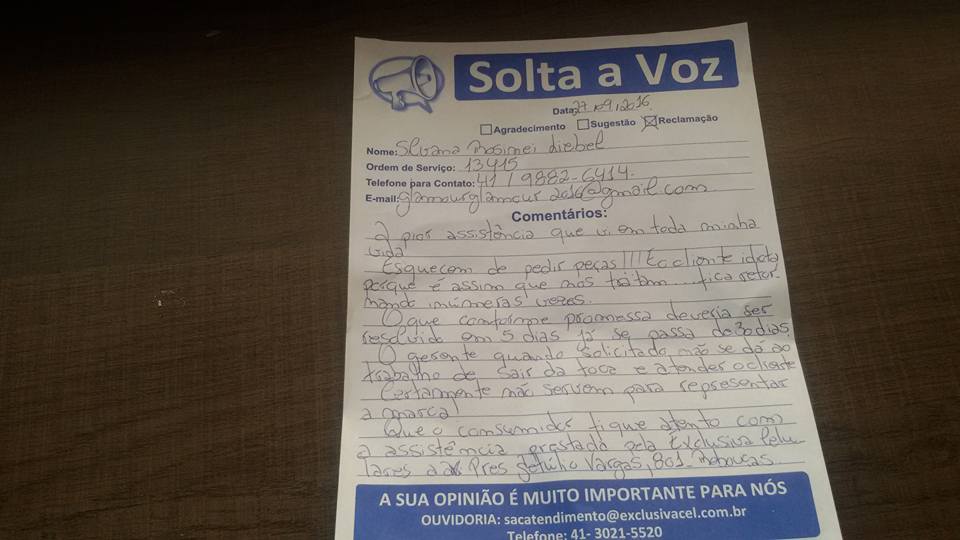 Solta a Voz
Data: 27/09/2016
Agradecimento Sugestão Reclamação
Nome: Silvana Rosimei diebel
Ordem de Serviço: 13415
Telefone para Contato: 41 / 9882-6414.
E-mail: glamourglamour2016@gmail.com
Comentários:
A pior assistência que vi em toda minha
vida
Esquecem de pedir peças!!! E o cliente idiota
porque é assim que nos tratam... fica retor-
nando inúmeras vezes.
O que conforme promessa deveria ser
resolvido em 5 dias já se passa de 30 dias.
O gerente quando solicitado não se dá ao
trabalho de sair da toca e atender o cliente
Certamente não servem para representar
a marca!
Que o consumidor fique atento com
a assistência prestada pela Exclusiva Celu-
lares a Pres Getulho Vargas, 801. Rebouças.
A SUA OPINIÃO É MUITO IMPORTANTE PARA NÓS
OUVIDORIA: sacatendimento@exclusivacel.com.br
Telefone: 41- 3021-5520